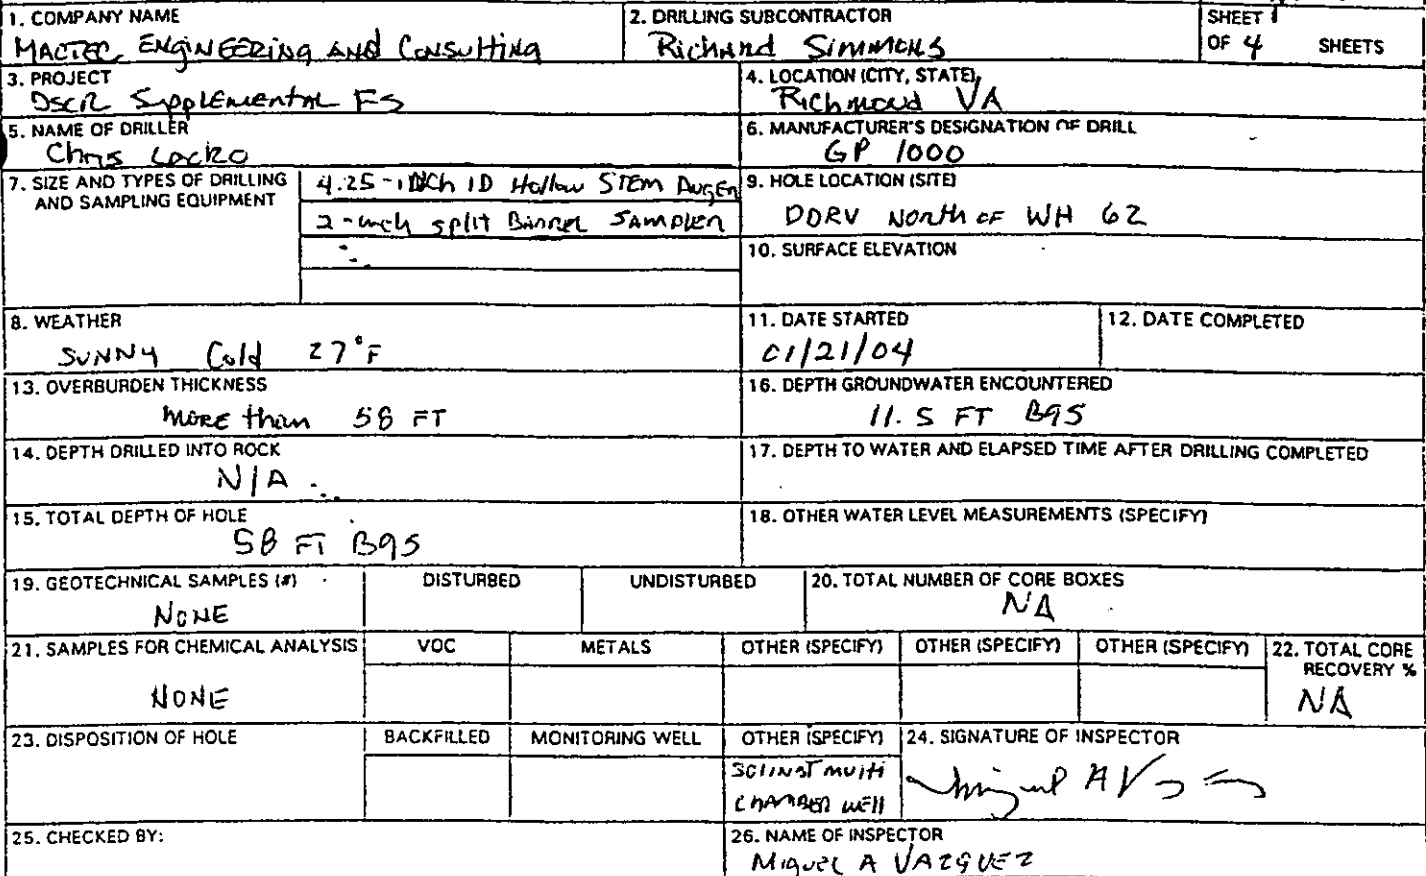 1. COMPANY NAME
MACTEC ENGINEERING AND CONSULTING
2. DRILLING SUBCONTRACTOR
Richard Simmons
SHEET 1
OF 4 SHEETS
3. PROJECT
DSCR Supplemental FS
4. LOCATION (CITY, STATE)
Richmond VA
5. NAME OF DRILLER
Chris
6. MANUFACTURER'S DESIGNATION OF DRILL
GP 1000
7. SIZE AND TYPES OF DRILLING
AND SAMPLING EQUIPMENT
4.25-inch ID Hollow STEM Auger
2-inch split Barrel Sampler
9. HOLE LOCATION (SITE)
DDRV North of WH 62
10. SURFACE ELEVATION
8. WEATHER
SUNNY Cold 27°F
11. DATE STARTED
01/21/04
12. DATE COMPLETED
13. OVERBURDEN THICKNESS
more than 58 FT
16. DEPTH GROUNDWATER ENCOUNTERED
11.5 FT Bgs
14. DEPTH DRILLED INTO ROCK
N/A
17. DEPTH TO WATER AND ELAPSED TIME AFTER DRILLING COMPLETED
15. TOTAL DEPTH OF HOLE
58 FT Bgs
18. OTHER WATER LEVEL MEASUREMENTS (SPECIFY)
19. GEOTECHNICAL SAMPLES (#)
NONE
DISTURBED
UNDISTURBED
20. TOTAL NUMBER OF CORE BOXES
NA
21. SAMPLES FOR CHEMICAL ANALYSIS
NONE
VOC
METALS
OTHER (SPECIFY)
OTHER (SPECIFY)
OTHER (SPECIFY)
22. TOTAL CORE
RECOVERY %
NA
23. DISPOSITION OF HOLE
BACKFILLED
MONITORING WELL
OTHER (SPECIFY)
Solinst multi
CHAMBER well
24. SIGNATURE OF INSPECTOR
25. CHECKED BY:
26. NAME OF INSPECTOR
Miguel A VAZQUEZ